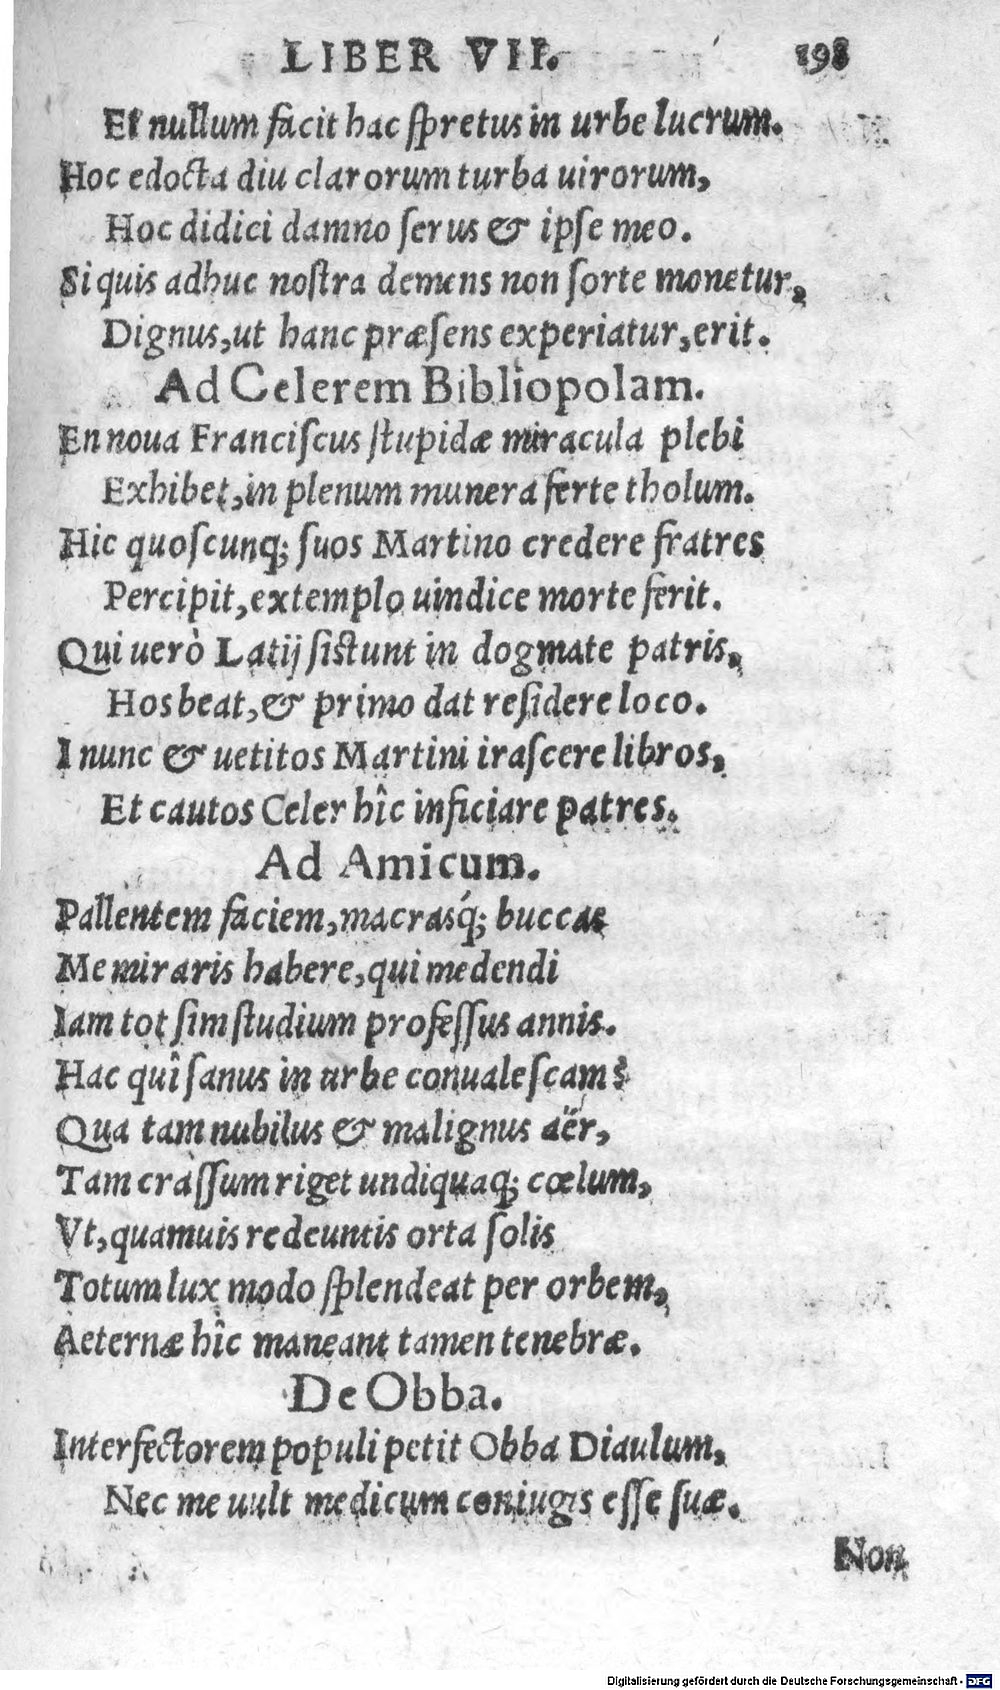 LIBER VII. 198
Et nullum facit hac ſpretus in urbe lucrum.
Hoc edocta diu clarorum turba uirorum,
Hoc didici damno ſerus & ipſe meo.
Si quis adhuc noſtra demens non ſorte monetur,
Dignus, ut hanc præſens experiatur, erit.
Ad Celerem Bibliopolam.
En noua Franciſcus ſtupidæ miracula plebi
Exhibet, in plenum munera ferte tholum.
Hic quoſcunq; ſuos Martino credere fratres
Percipit, extemplo uindice morte ferit.
Qui uerò Latij ſiſtunt in dogmate patris,
Hos beat, & primo dat reſidere loco.
I nunc & uetitos Martini iraſcere libros,
Et cautos Celer hîc inficiare patres.
Ad Amicum.
Pallentem faciem, macrasq́; buccas
Me miraris habere, qui medendi
Iam tot ſim ſtudium profeſſus annis.
Hac quî ſanus in urbe conualeſcam?
Qua tam nubilus & malignus aër,
Tam craſſum riget undiquaq; cœlum,
Vt, quamuis redeuntis orta ſolis
Totum lux modo ſplendeat per orbem,
Aeternæ hîc maneant tamen tenebræ.
De Obba.
Interfectorem populi petit Obba Diaulum,
Nec me uult medicum coniugis eſſe ſuæ.
Non
Digitalisierung gefördert durch die Deutsche Forschungsgemeinschaft - DFG